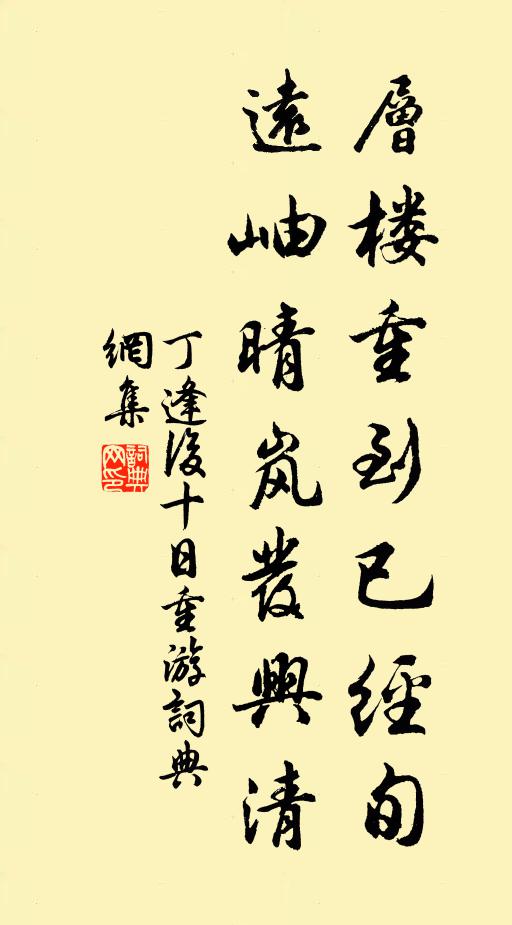 層楼重到已經旬
遠岫晴岚發興清
丁逢後十日重游詞典
網集
詞典
网印